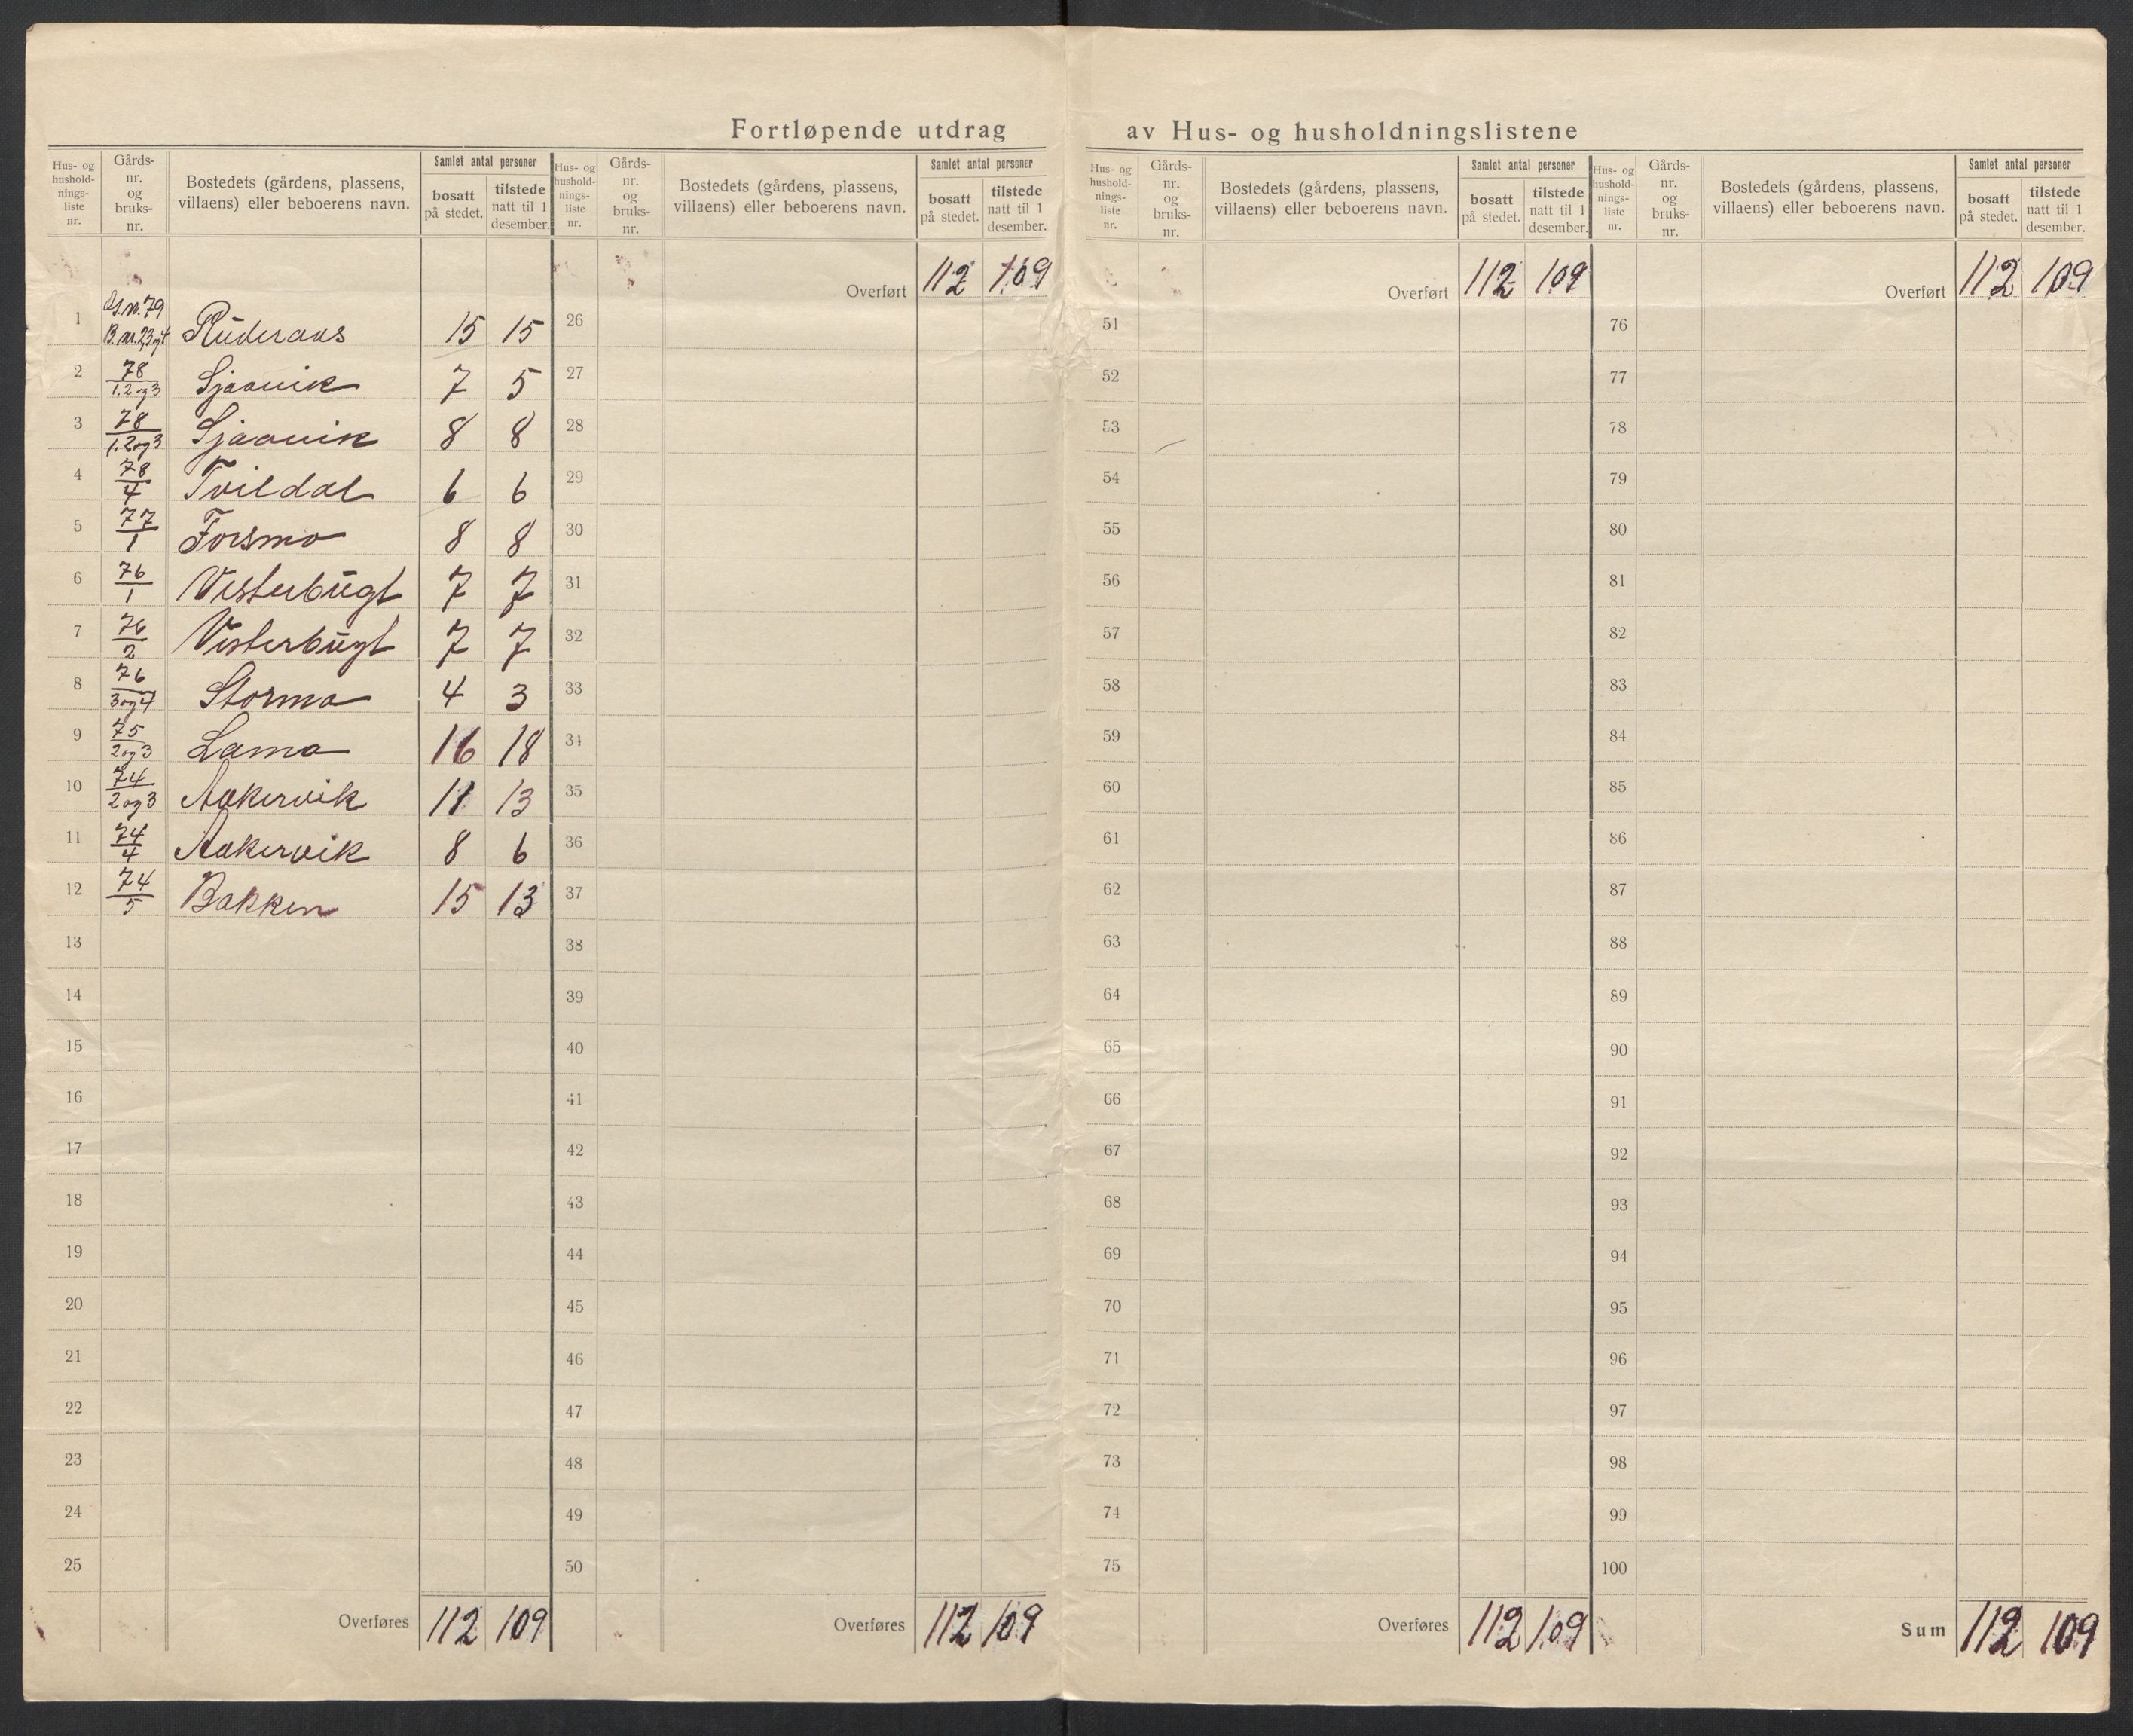 Fortløpende utdrag av Hus- og husholdningslistene
Hus- og husholdningsliste nr.
Gårds-nr. og bruks-nr.
Bostedets (gårdens, plassens, villaens) eller beboerens navn.
Samlet antal personer
bosatt på stedet.
tilstede natt til 1 desember.
1 Gs. nr. 79 B. nr. 2,3 og 4 Ruderaas 15 15
2 78/1.2 og 3 Sjaavik 7 5
3 78/1.2 og 3 Sjaavik 8 8
4 78/4 Tvildal 6 6
5 77/1 Forsmo 8 8
6 76/1 Vesterbugt 7 7
7 76/2 Vesterbugt 7 7
8 76/3 og 4 Stormo 4 3
9 75/2 og 3 Lamo 16 18
10 74/2 og 3 Aakervik 11 13
11 74/4 Aakervik 8 6
12 74/5 Bakken 15 13
13
14
15
16
17
18
19
20
21
22
23
24
25
Overføres 112 109
Hus- og husholdningsliste nr.
Gårds-nr. og bruks-nr.
Bostedets (gårdens, plassens, villaens) eller beboerens navn.
Samlet antal personer
bosatt på stedet.
tilstede natt til 1 desember.
Overført 112 109
26
27
28
29
30
31
32
33
34
35
36
37
38
39
40
41
42
43
44
45
46
47
48
49
50
Overføres 112 109
Hus- og husholdningsliste nr.
Gårds-nr. og bruks-nr.
Bostedets (gårdens, plassens, villaens) eller beboerens navn.
Samlet antal personer
bosatt på stedet.
tilstede natt til 1 desember.
Overført 112 109
51
52
53
54
55
56
57
58
59
60
61
62
63
64
65
66
67
68
69
70
71
72
73
74
75
Overføres 112 109
Hus- og husholdningsliste nr.
Gårds-nr. og bruks-nr.
Bostedets (gårdens, plassens, villaens) eller beboerens navn.
Samlet antal personer
bosatt på stedet.
tilstede natt til 1 desember.
Overført 112 109
76
77
78
79
80
81
82
83
84
85
86
87
88
89
90
91
92
93
94
95
96
97
98
99
100
Sum 112 109